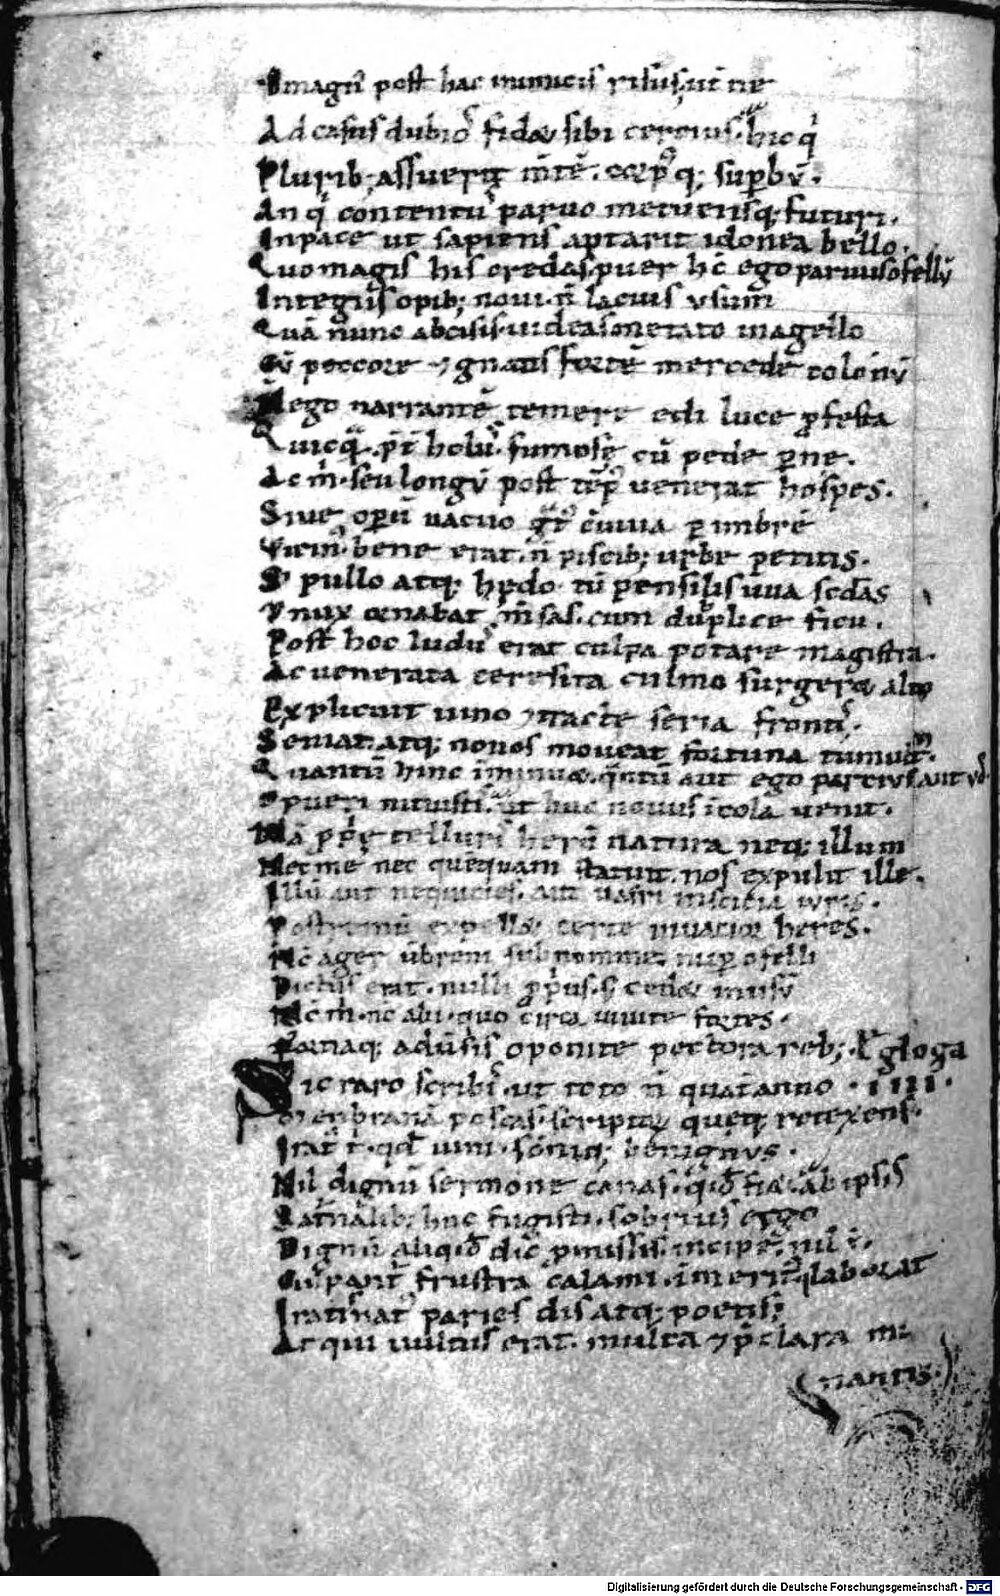 O magnꝰ post hac inimicis risus ut ne
Ad casus dubioꝭ fidæ sibi cercius. hic qͥ
Plurib; assuerit m̄tē. corpꝰ q; suꝑbū.
An qͥ contentꝰ paruo metuensq; futuri.
In pace ut sapiens aptarit idonea bello.
Quo magis his credas. puer hᷤc ego paruus ofellū
Integris opib; noui. n̄ lacius usum
Quā nunc abcisis. uideas metato in agello
Cū peccore ⁊ gnatis fortē mercede colonū
N̄ ego narrantē temere edi luce ꝓfesta
Quicq̄. p̄t̄ holꝰ. fumose cū pede ꝑne.
Ac m̄. seu longū post tēpꝰ uenerat hospes.
Siue oꝑū uacuo gͣtꝰ cuiua ꝑ imbrē
Uicinꝰ. bene erat. n̄ piscib; urbe petitis.
S; pullo atq; hędo. tū pensilis uua secdas
Et nux ornabat m̄sas. cum duplice ficu.
Post hoc ludꝰ erat culpa potare magistra.
Ac uenerata ceres ita culmo surgeræ alto
Explicuit uino ⁊tracte seria frontꝭ.
Seuiat. atq; nouos moueat fortuna tumultꝰ.
Quantū hinc īminuæ. qͣntū aut ego parcius aut uos
O pueri nituistis. ut huc nouus īcola uenit.
Nā ꝓpͥe tellurꝭ herū natura neq; illum
Nec me nec quequam statuit. nos expulit ille.
Illū aut nequicies. aut uafri inscitia iuris.
Postremū expellæ certe uiuacior heres.
Nc̄ ager ūbreni sub nomine. nuꝑ ofelli
Dictus erat. nulli ꝓpͥus. s; cedæ in usū
Nc̄ m̄. nc̄ alii. quo circa uiuite fortes.
Fortiaq; aduͥsis oponite pectora reb;. Egloga
Sic raro scribꝭ. ut toto n̄ quat̄ anno. iiii.
Membranā poscas. scriptoꝝ queq; retexens.
Iratꝰ t̄. qd̄ uini. sōniq; benignus.
Nil dignū sermone canas. qͥd fiæ. ab ipsis
Saturnalib; huc fugisti. sobrius ergo
Dignū aliqͥd dic ꝓmissis. incipe. nil ē.
Culpant̄ frustra calami. imeritꝰq; laborat
Iratꝭ natꝰ paries dis atq; poetis;
Atqui uultus erat. multa ⁊ p̄clara mi
nantis.
Digitalisierung gefördert durch die Deutsche Forschungsgemeinschaft - DFG